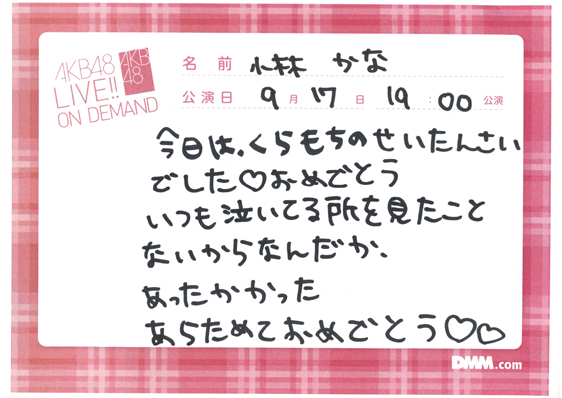 AKB48
LIVE!!
ON DEMAND
AKB
48
名前 小林 かな
公演日 9月17日 19:00公演
今日は、くらもちのせいたんさい
でした♡おめでとう
いつも泣いてる所を見たこと
ないからなんだか、
あったかかった
あらためておめでとう♡♡
DMM.com